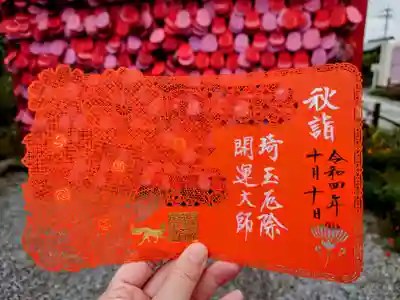 秋詣
令和四年
十月十日
埼玉厄除
開運大師